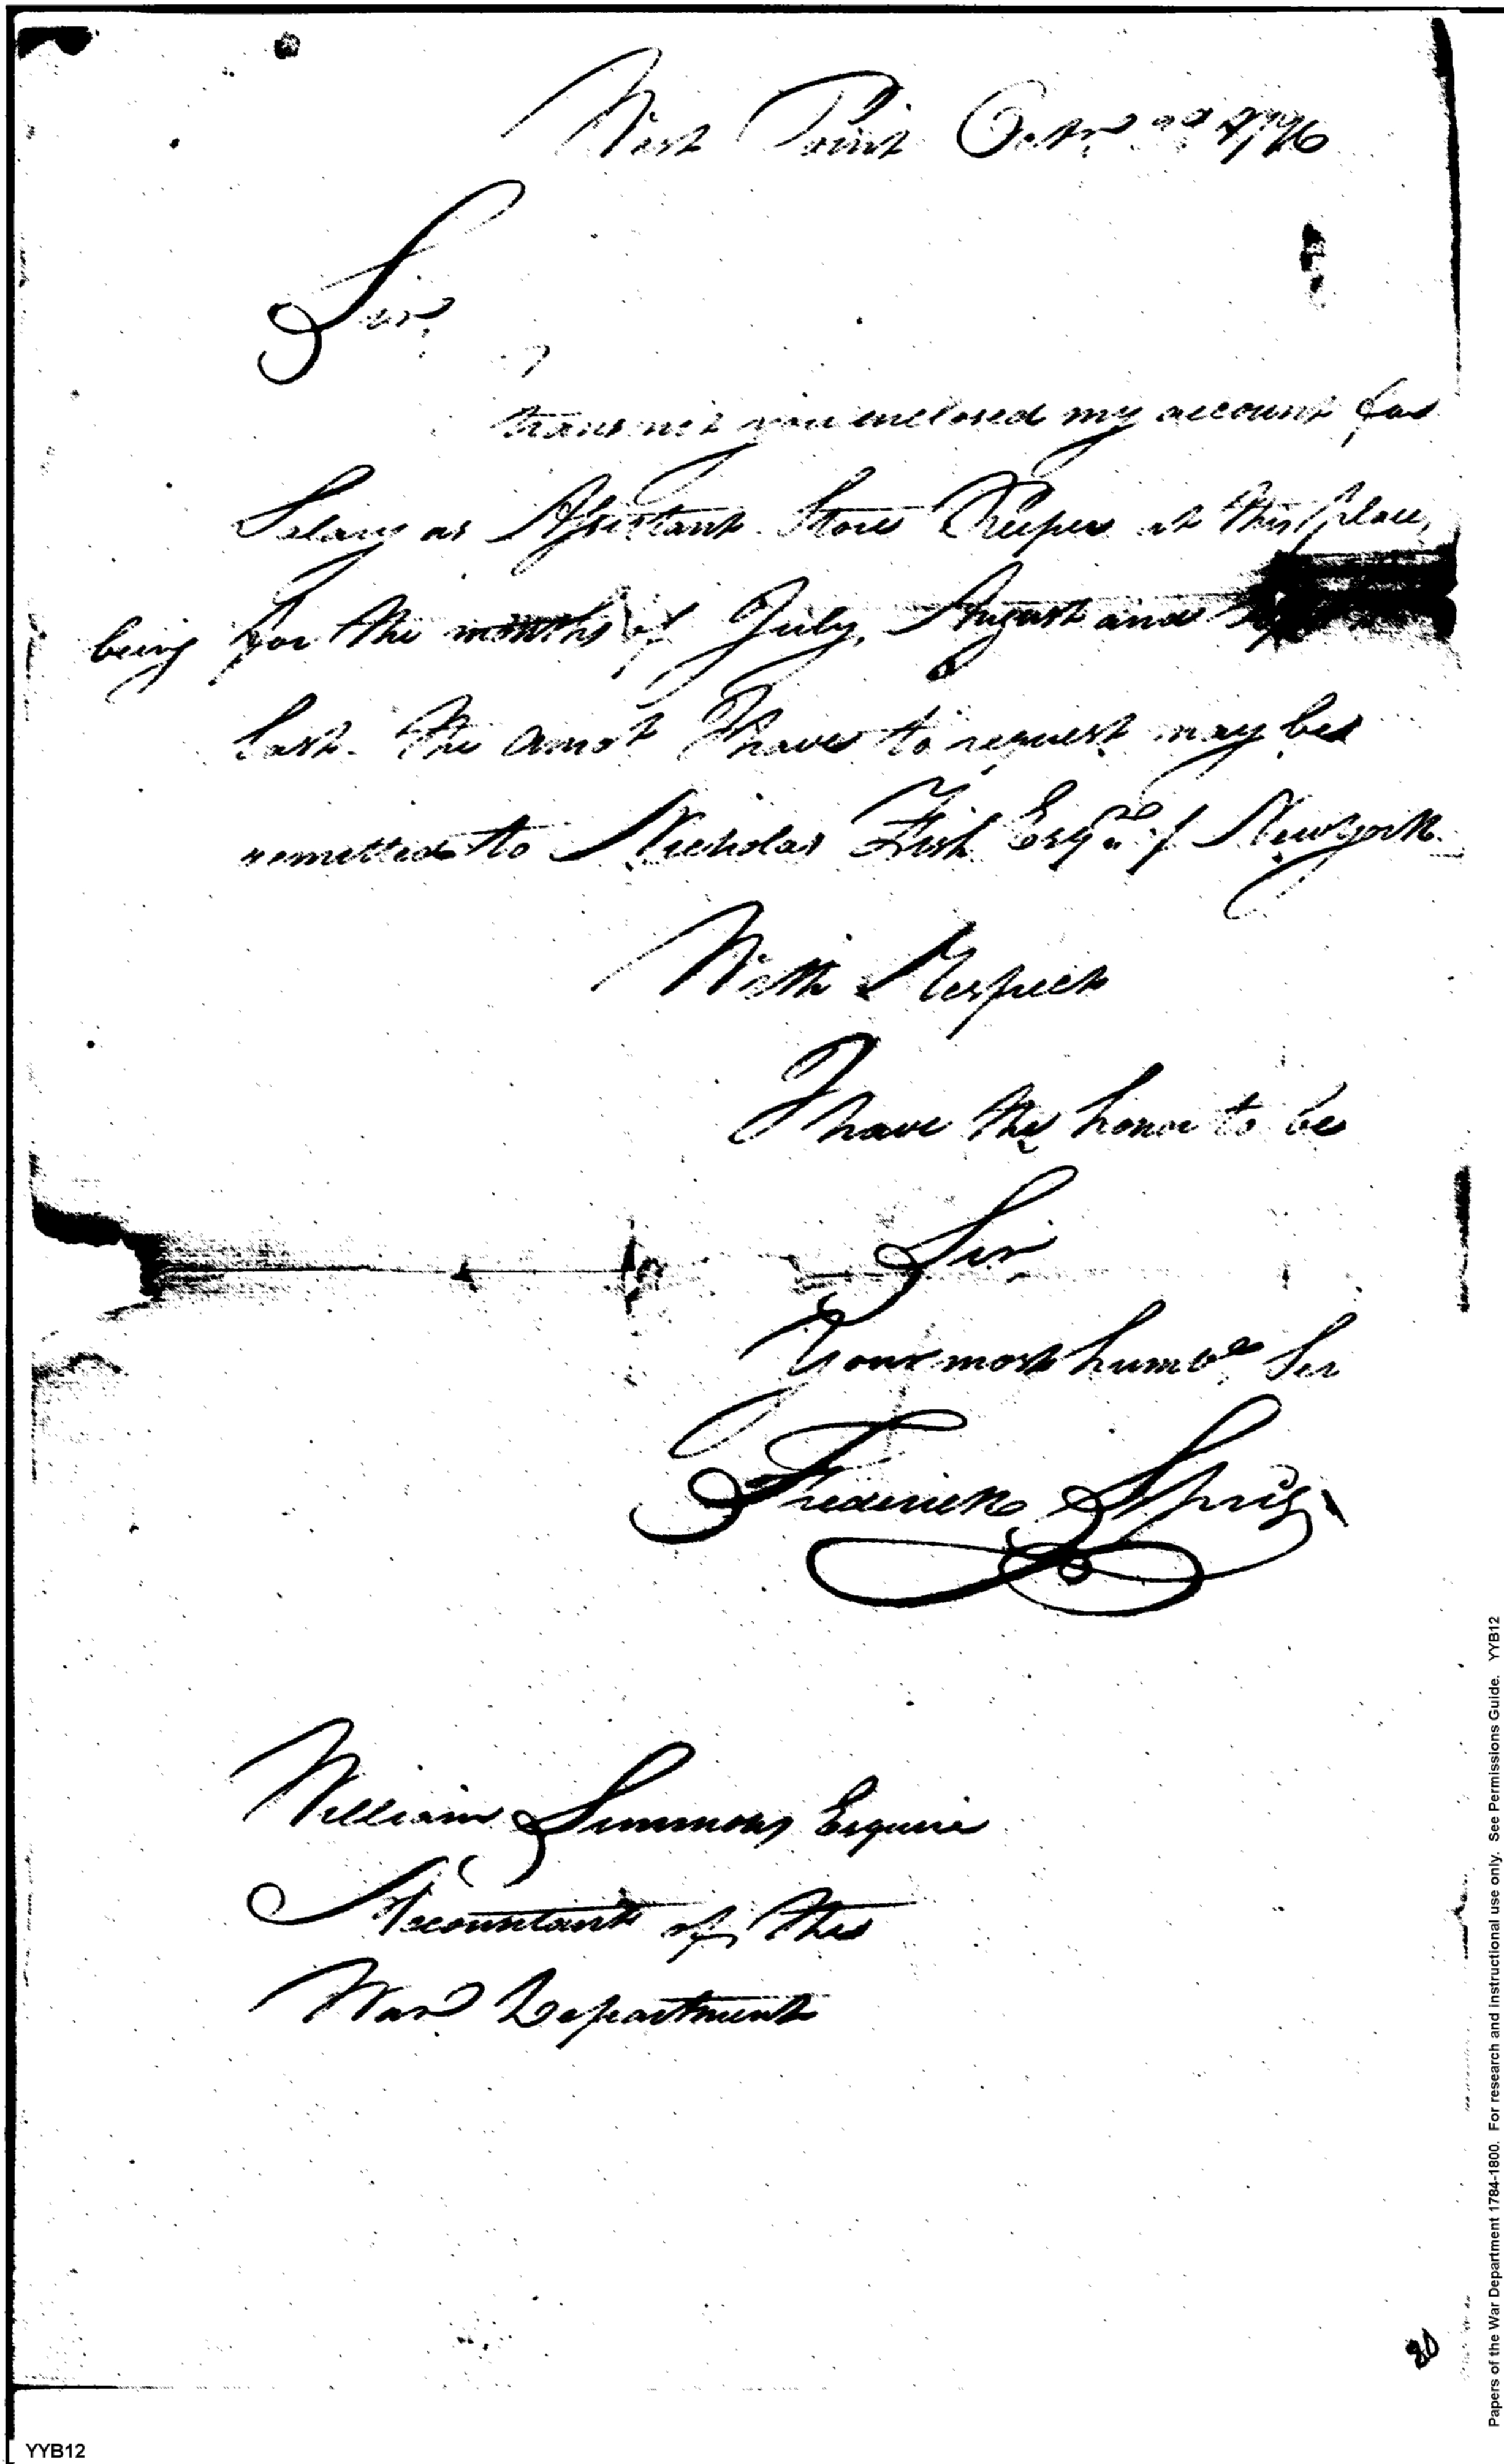 West Point Octr. 1796
Sir,
transmit you enclosed my account for
Salary as Assistant Store Keeper at this place,
being for the months of July, August and
last. The amot I have to request may be
remitted to Nicholas Fish Esqre. of Newyork.
With Respect
I have the honor to be
Sir,
Your most humble Ser
Frederick Sprig
William Simmons Esquire
Accountant of the
War Department
20
YYB12
Papers of the War Department 1784-1800. For research and instructional use only. See Permissions Guide. YYB12